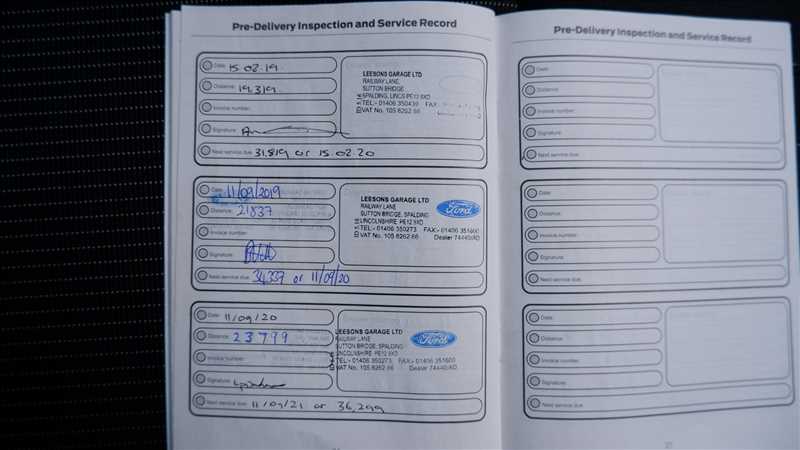 Pre-Delivery Inspection and Service Record
Date: 15.02.19
Distance: 19319
Invoice number:
Signature:
Next service due: 31,819 or 15.02.20
LEESONS GARAGE LTD
RAILWAY LANE,
SUTTON BRIDGE
SPALDING, LINCS PE12 9XD
TEL:- 01406 350439 FAX
VAT No. 105 6262 66
Date: 11/09/2019
Distance: 21837
Invoice number:
Signature:
Next service due: 34337 or 11/09/20
LEESONS GARAGE LTD
RAILWAY LANE
SUTTON BRIDGE, SPALDING
LINCOLNSHIRE PE12 9XD
TEL:- 01406 350273 FAX:- 01406 351600
VAT No. 105 6262 66 Dealer 74440/AD
Ford
Date: 11/09/20
Distance: 23799
Invoice number:
Signature:
Next service due: 11/09/21 or 36,299
LEESONS GARAGE LTD
RAILWAY LANE
SUTTON BRIDGE, SPALDING
LINCOLNSHIRE PE12 9XD
TEL:- 01406 350273 FAX:- 01406 351600
VAT No. 105 6262 66 Dealer 74440/AD
Ford
Pre-Delivery Inspection and Service Record
Date:
Distance:
Invoice number:
Signature:
Next service due:
Date:
Distance:
Invoice number:
Signature:
Next service due:
Date:
Distance:
Invoice number:
Signature:
Next service due: